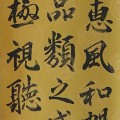 惠風和暢
品類之盛
極視聽